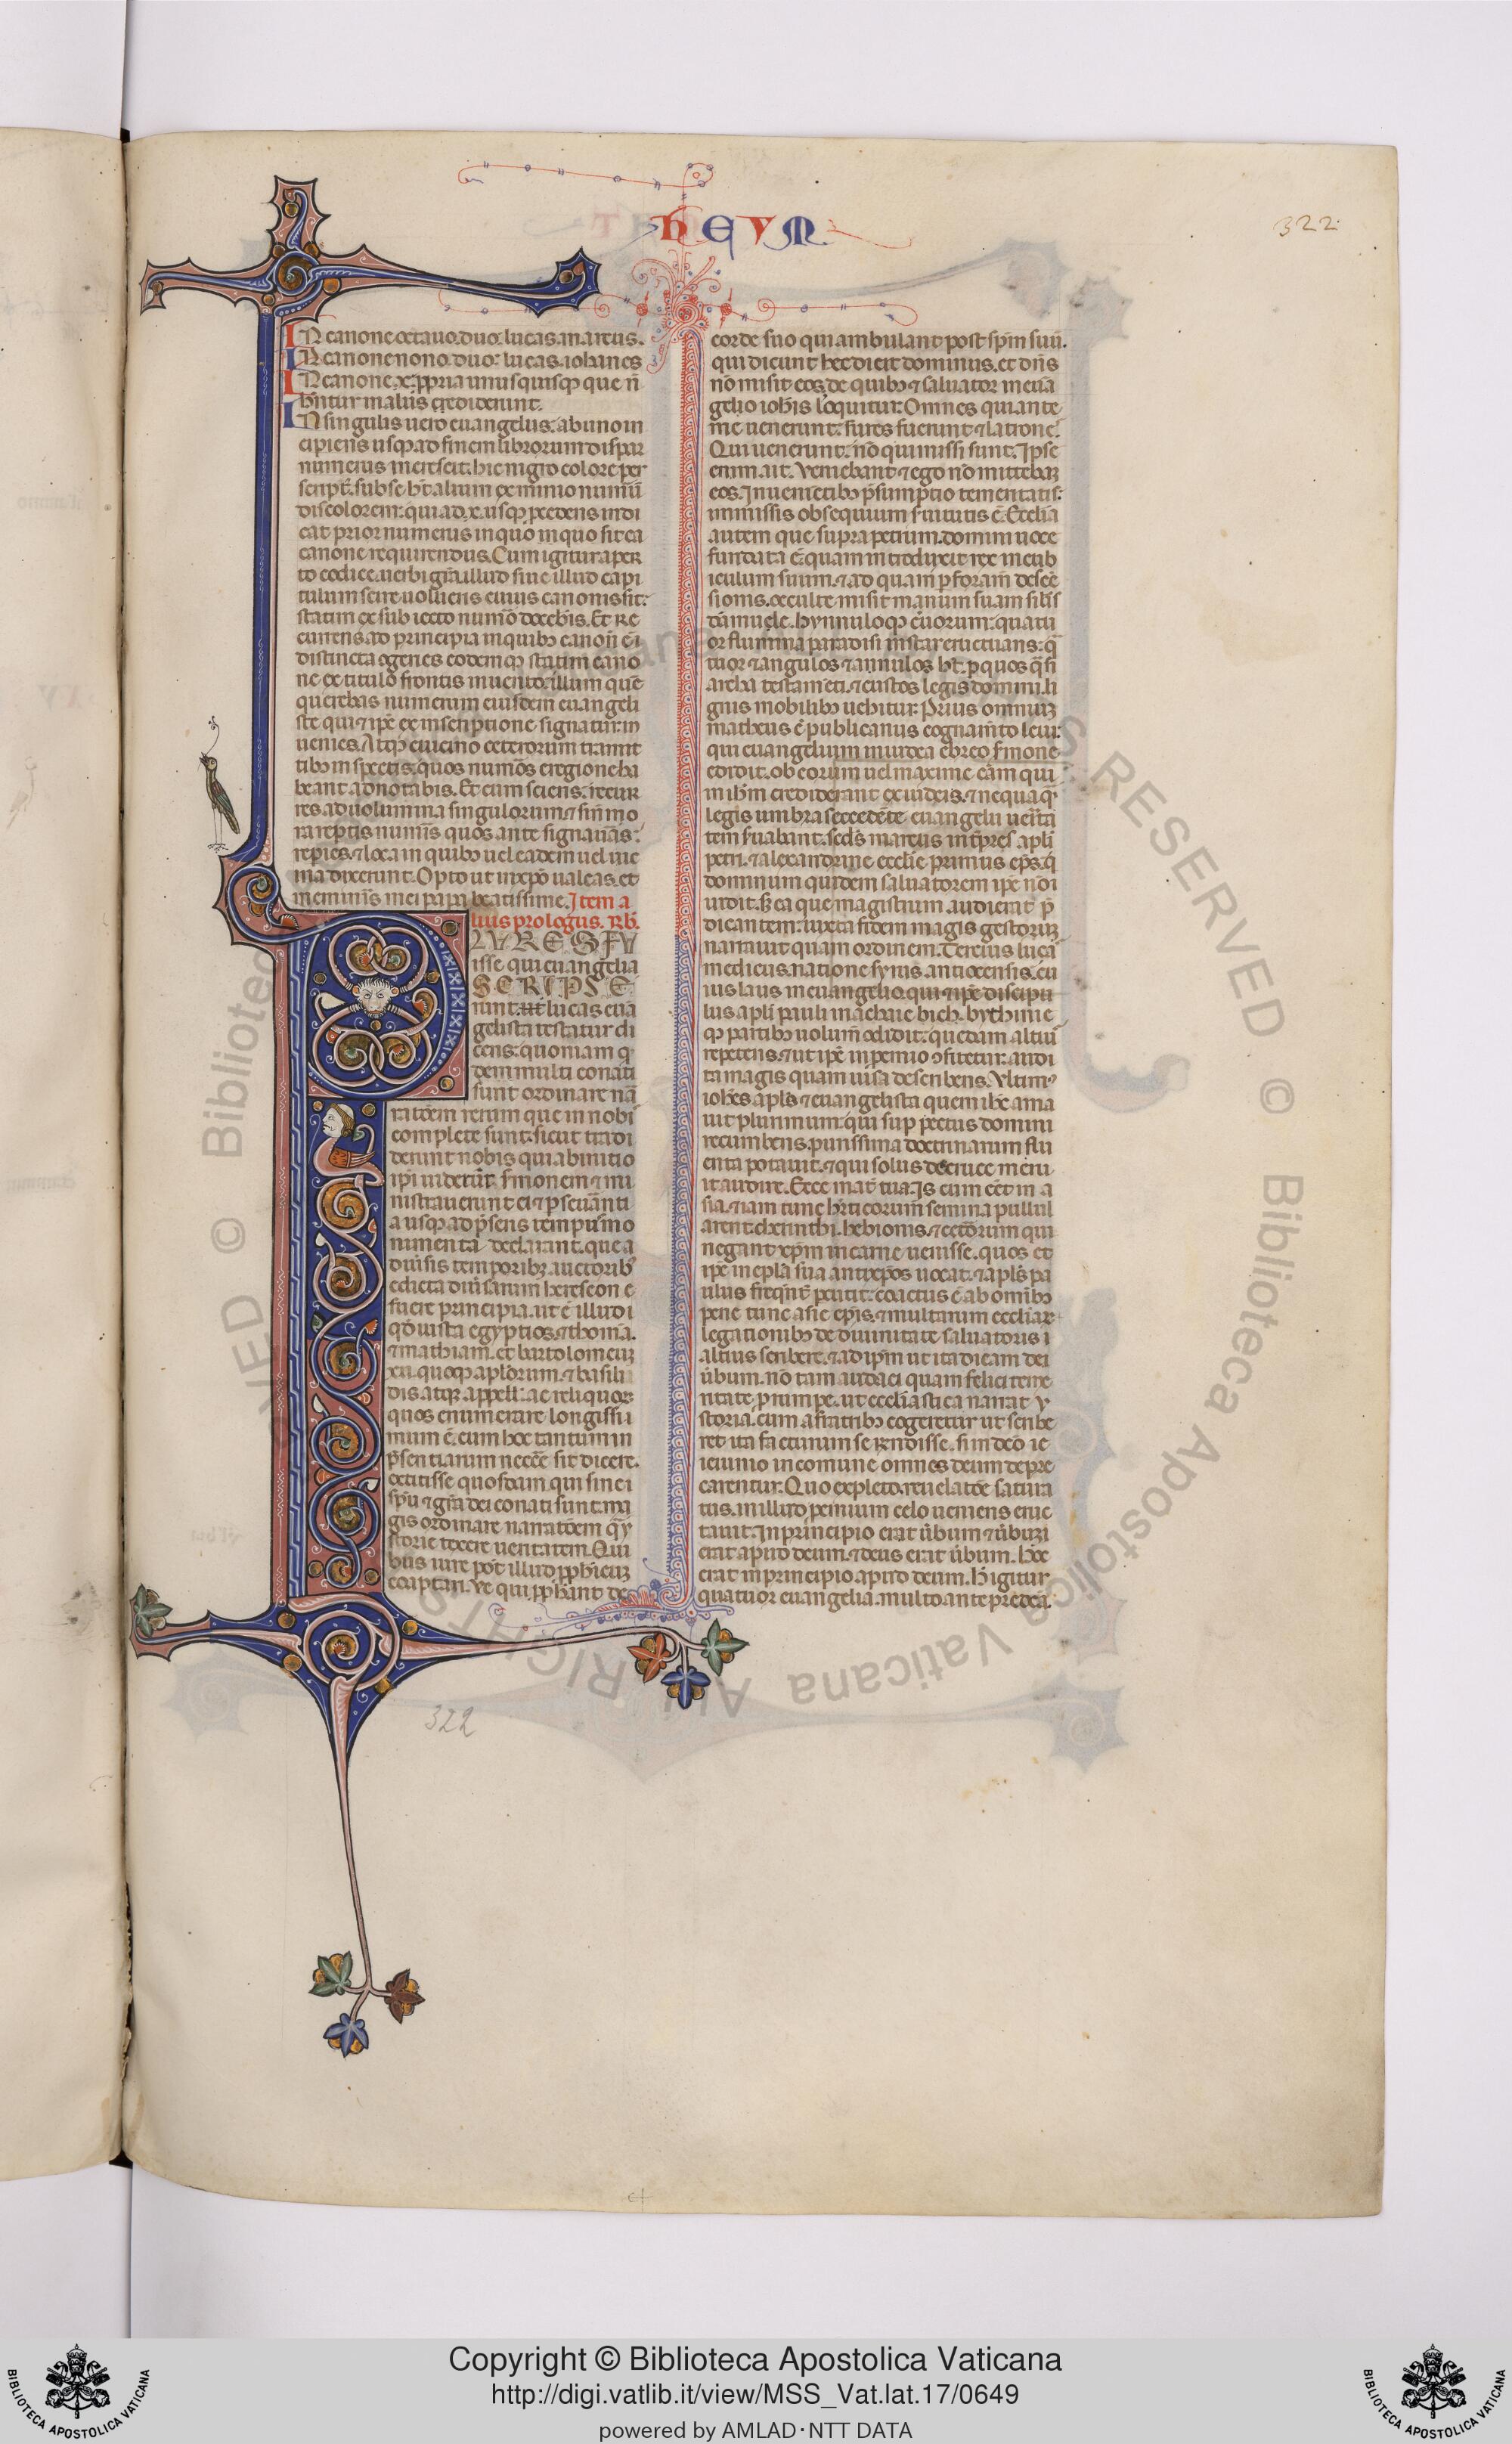 HEVM
322
In canone octauo. duo. lucas. marcus.
In canone nono. duo: lucas. iohanes
In canone .x. ppria unusquisqȝ que ñ
hñtur in aliis ediderunt.
In singulis uero euangeliis: ab uno in
cipiens usqȝ ad finem librorum: dispar
numerus increscit. hic nigro colore per
script᷒. sub se ht alium ex minio numũ
discolorem: qui ad .x. usqȝ pcedens indi
cat prior numerus in quo in quo sit ca
canone requirendus. Cum igitur aper
to codice. uerbi grã. illud siue illud capi
tulum scire uolueris cuius canonis sit:
statim ex subiecto numo docebis. Et re
currens ad principia in quibȝ canoñ ẽ i
distincta ogeries eodemqȝ statim cano
ne ex titulo frontis inuento. illum quẽ
querebas numerum eiusdem euangeli
ste qui ⁊ ipẽ ex inscriptione signatur. in
uenies. Atqȝ e uicino ceterorum tramit
tibȝ inspectis. quos numos e regione ha
beant adnotabis. Et cum scieris: recur
res ad uolumina singulorum ⁊ sin̄ mo
ra reptis numis quos ante signauas:
repies. ⁊ loca in quibȝ uel eadem uel uic
ina dixerunt. Opto ut in xpo ualeas. et
memin̄is mei papa beatissime. Item a
lius prologus. Rb̄.
PLVRES FV
isse qui euangelia
SCRIPSE
runt. ut lucas euã
gelista testatur di
cens: quoniam q
dem multi conati
sunt ordinare nã
rationem rerum que in nobi
complete sunt. sicut tradi
derunt nobis qui ab initio
ipi uiderũt. sermonem ⁊ mi
nistrauerunt ei ⁊ pseuanti
a usqȝ ad psens tempus mo
numenta declarant. que a
diuisis temporibȝ auctoribȝ
edicta diuisarum hereseon e
fuere principia. ut ẽ illud i
qd iuxta egyptios. ⁊ thomã.
⁊ mathiam. et bartolomeuȝ
xii. quoqȝ aplorum. ⁊ basili
dis. atqȝ appell᷒. ac reliquoꝝ
quos enumerare longissi
mum ẽ. cum hoc tantum in
psentiarum necẽe sit dicere.
extitisse quosdam qui sine i
spũ ⁊ grã dei conati sunt. ma
gis ordinare narratõem q̃ y
storie texere ueritatem. Qui
bus iure pot illud ppheticuȝ
coaptari. Ve qui pphant de
corde suo qui ambulant post spm suũ.
qui dicunt hec dicit dominus. et dñs
nõ misit eos. de quibȝ ⁊ saluator in euã
gelio iohis loquitur. Omnes qui ante
me uenerunt: fures fuerunt ⁊ latrones.
Qui uenerunt. nõ qui missi sunt. Ipse
enim ait. Veniebant ⁊ ego nõ mittebaȝ
eos. In uenietibȝ psumptio temeritatis:
in missis obsequium seruitutis ẽ. Ecclia
autem que supra petrum. domini uoce
fundata ẽ quam introduxit rex in cub
iculum suum. ⁊ ad quam p foram descẽ
sionis. occulte misit manum suam silis
damule. hynnuloqȝ ceruorum: quatu
or flumina paradisi instar eructuans: q̃
tuor ⁊ angulos ⁊ annulos ht. p quos q̃si
archa testameti. ⁊ custos legis domini. li
gnis mobilibȝ uehitur. Primus omniuȝ
matheus ẽ publicanus cognomto leui:
qui euangelium in iudea ebreo sermone
edidit. ob eorum uel maxime cam qui
in ihm crediderant ex iudeis. ⁊ nequaq̃
legis umbra seccedẽte euangelii uerita
tem suabant. scds marcus intpres apli
petri. ⁊ alexandrine ecclie primus eps. q
dominum quidem saluatorem ipe nõ i
uidit. sȝ ea que magistrum audierat p
dicantem: iuxta fidem magis gestoruȝ
narrauit quam ordinem. Tercius lucas
medicus. natione syrus antiocensis. cu
ius laus in euangelio. qui ⁊ ipe discipu
lus apli pauli in achaie bich. bythinie
qȝ partibȝ uolum̄ edidit: quedam altiu
repetens. ⁊ ut ipe in pemio ofitetur: audi
ta magis quam uisa describens. Vltim᷒
iohes apls ⁊ euangelista quem ihc ama
uit plurimum: qui sup pectus domini
recumbens. purissima doctrinarum flu
enta potauit. ⁊ qui solus de cruce meru
it audire. Ecce mat tua. Is cum eet in a
sia. ⁊ iam tunc hereticorum semina pullul
arent. cherinthi. hebionis. ⁊ ceterorum qui
negant xpm in carne uenisse. quos et
ipe in epla sua antixpos uocat. ⁊ apls pa
ulus freqnt pcutit: coactus ẽ ab omibȝ
pene tunc asie epis. ⁊ multarum eccliarȝ
legationibȝ de diuinitate saluatoris i
altius scribere. ⁊ ad ipm ut ita dicam dei
ubum. nõ tam audaci quam felici teme
ritate prumpe. ut eccliastica narrat y
storia. cum a fratribȝ cogeretur ut scribe
ret ita facturum se rñdisse. si indcõ ie
ieiunio in comune omnes deum depre
carentur. Quo expleto. reuelatõe satura
tus. in illud pemium celo ueniens eruc
tauit. In principio erat ubum ⁊ ubuȝ
erat apud deum. ⁊ deus erat ubum. hoc
erat in principio apud deum. H igitur
quatuor euangelia. multo ante predca.
322
Copyright © Biblioteca Apostolica Vaticana
http://digi.vatlib.it/view/MSS_Vat.lat.17/0649
powered by AMLAD·NTT DATA
BIBLIOTECA APOSTOLICA VATICANA
BIBLIOTECA APOSTOLICA VATICANA